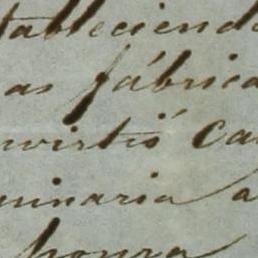 tableciendo
as fábrica
nvirtió Ca
uinaria a
honra